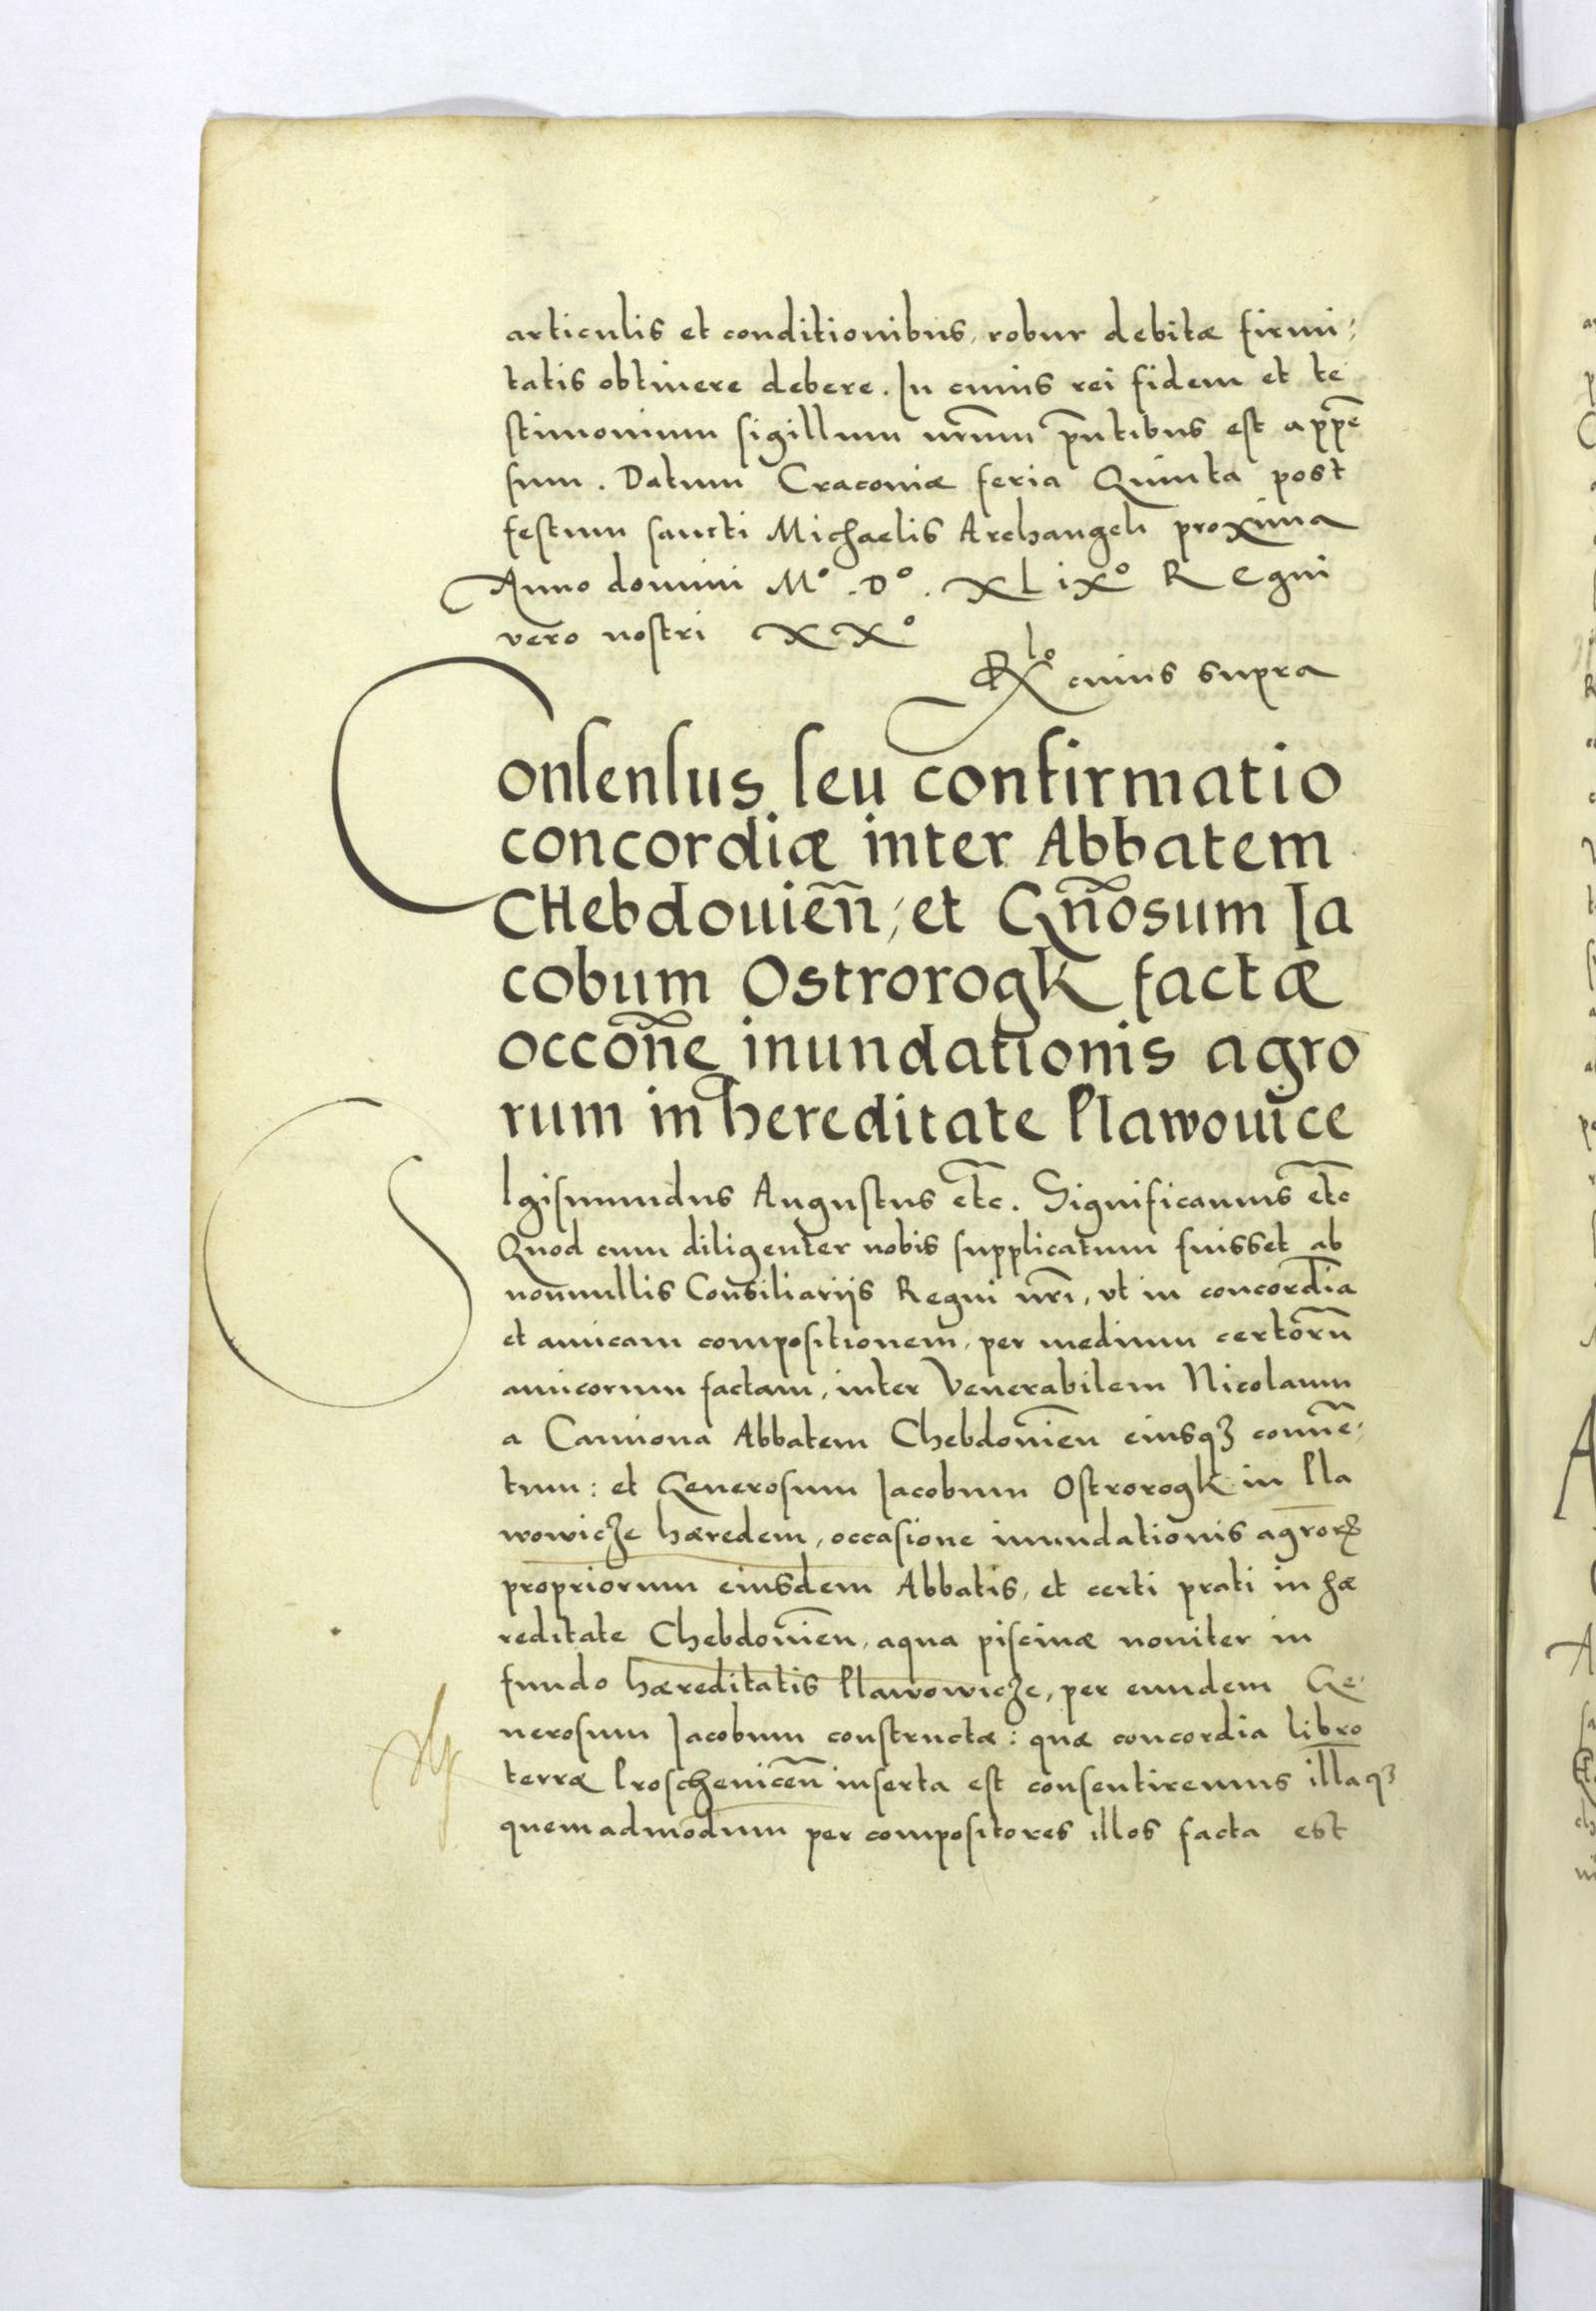 articulis et conditionibus, robur debitæ firmi:
tatis obtinere debere. In cuius rei fidem et te
stimonium sigillum nr̃um p̃ntibus est appẽ
sum. Datum Cracoviæ feria Quinta post
festum sancti Michaelis Archangeli proxima
Anno domini Mº. Dº. XLixº Regni
vero nostri XXº
Rlo cuius supra
Consensus seu confirmatio
concordiæ inter Abbatem
CHebdouieñ, et Gñosum Ia
cobum Ostrorogk factæ
occõne inundationis agro
rum in hereditate Plawouice
SIgismundus Augustus etc. Significamus etc
Quod cum diligenter nobis supplicatum fuisset ab
nonnullis Consiliarijs Regni nr̃i, vt in concordiã
et amicam compositionem, per medium certorũ
amicorum factam, inter Venerabilem Nicolaum
a Camiona Abbatem Chebdouieñ eiusqꝫ conuẽ:
tum: et Generosum Iacobum Ostrorogk in Pla
wowicze hæredem, occasione inundationis agrorꝝ
propriorum eiusdem Abbatis, et certi prati in hæ
reditate Chebdouieñ, aqua piscinæ nouiter in
fundo hæreditatis Plawowicze, per eundem Ge:
nerosum Iacobum constructæ: quæ concordia libro
terræ Proschouiceñ inserta est consentiremus illaqꝫ
quemadmodum per compositores illos facta est